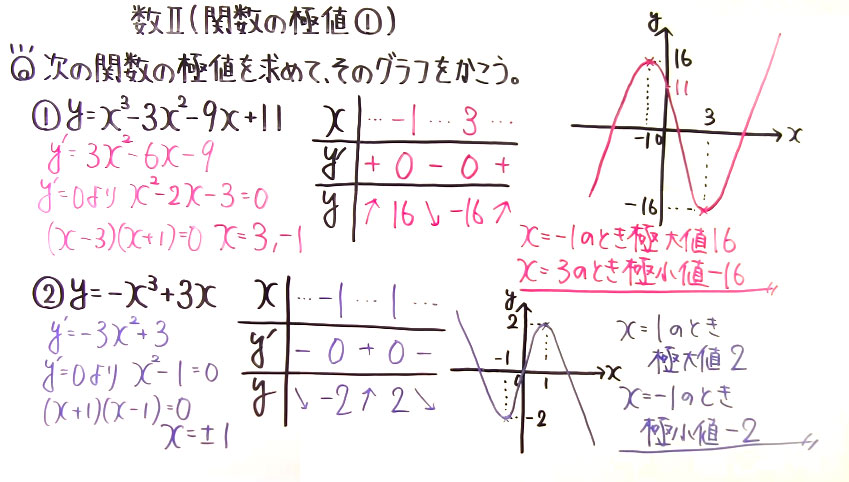 数Ⅱ(関数の極値①)
次の関数の極値を求めて、そのグラフをかこう。
① y=x³-3x²-9x+11
y′=3x²-6x-9
y′=0より x²-2x-3=0
(x-3)(x+1)=0 x=3,-1
x … -1 … 3 …
y′ + 0 - 0 +
y ↗ 16 ↘ -16 ↗
y
16
11
3
-1 0 x
-16
x=-1のとき極大値16
x=3のとき極小値-16
② y=-x³+3x
y′=-3x²+3
y′=0より x²-1=0
(x+1)(x-1)=0
x=±1
x … -1 … 1 …
y′ - 0 + 0 -
y ↘ -2 ↗ 2 ↘
y
2
-1
0 1 x
-2
x=1のとき
極大値2
x=-1のとき
極小値-2